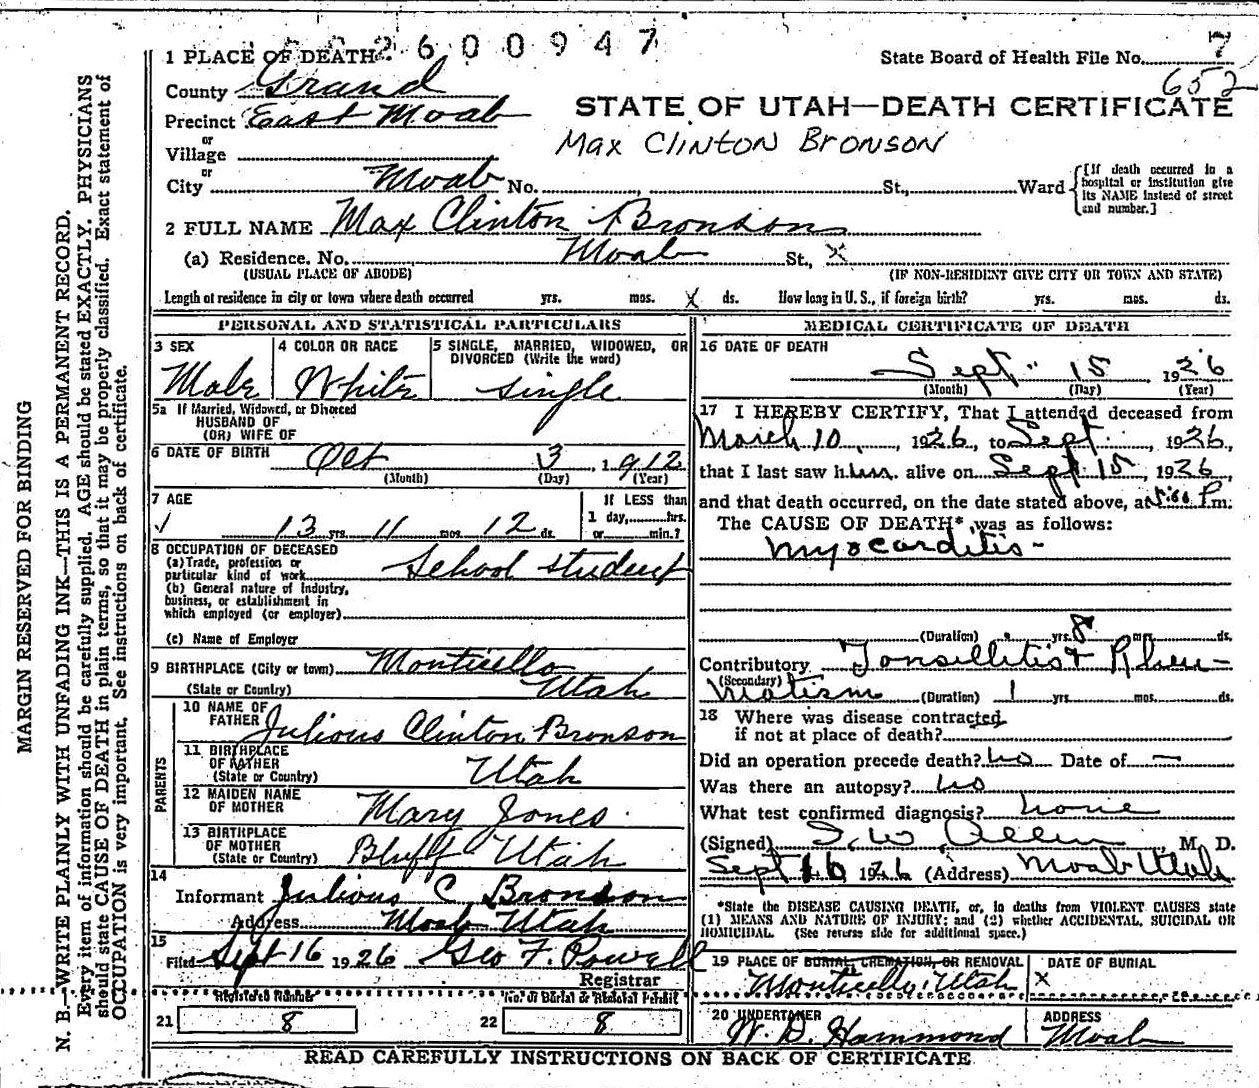 2600947
1 PLACE OF DEATH
State Board of Health File No. 7
652
County Grand
STATE OF UTAH—DEATH CERTIFICATE
Precinct East Moab
Max Clinton Bronson
or
Village
or
City Moab No. , St., Ward
[If death occurred in a hospital or institution give its NAME instead of street and number.]
2 FULL NAME Max Clinton Bronson
(a) Residence. No. Moab St., X
(USUAL PLACE OF ABODE) (IF NON-RESIDENT GIVE CITY OR TOWN AND STATE)
Length of residence in city or town where death occurred yrs. mos. X ds. How long in U. S., if foreign birth? yrs. mos. ds.
PERSONAL AND STATISTICAL PARTICULARS
3 SEX
Male
4 COLOR OR RACE
White
5 SINGLE, MARRIED, WIDOWED, OR DIVORCED (Write the word)
single
5a If Married, Widowed, or Divorced
HUSBAND OF
(OR) WIFE OF
6 DATE OF BIRTH Oct 3, 1912
(Month) (Day) (Year)
7 AGE
13 yrs. 11 mos. 12 ds.
If LESS than
1 day, hrs.
or min.?
8 OCCUPATION OF DECEASED
(a) Trade, profession or
particular kind of work School student
(b) General nature of industry,
business, or establishment in
which employed (or employer)
(c) Name of Employer
9 BIRTHPLACE (City or town) Monticello
(State or Country) Utah
PARENTS
10 NAME OF
FATHER Julious Clinton Bronson
11 BIRTHPLACE
OF FATHER
(State or Country) Utah
12 MAIDEN NAME
OF MOTHER Mary Jones
13 BIRTHPLACE
OF MOTHER
(State or Country) Bluff Utah
14
Informant Julious C Bronson
Address Moab Utah
15
Filed Sept 16 1926 Geo F. Powell
Registrar
Registered Number
No. of Burial or Removal Permit
21 8
22 8
MEDICAL CERTIFICATE OF DEATH
16 DATE OF DEATH
Sept. 15, 1926
(Month) (Day) (Year)
17 I HEREBY CERTIFY, That I attended deceased from
March 10, 1926, to Sept. , 1926,
that I last saw him alive on Sept. 15, 1926,
and that death occurred, on the date stated above, at P.m.
The CAUSE OF DEATH* was as follows:
myocarditis-
(Duration) yrs. 8 mos. ds.
Contributory Tonsillitis & Rheu-
(Secondary)
matism (Duration) 1 yrs. mos. ds.
18 Where was disease contracted
if not at place of death?
Did an operation precede death? no Date of —
Was there an autopsy? no
What test confirmed diagnosis? none
(Signed) I. W. Allen, M. D.
Sept 16 1926 (Address) Moab Utah
*State the DISEASE CAUSING DEATH, or, in deaths from VIOLENT CAUSES state
(1) MEANS AND NATURE OF INJURY; and (2) whether ACCIDENTAL, SUICIDAL OR
HOMICIDAL. (See reverse side for additional space.)
19 PLACE OF BURIAL, CREMATION, OR REMOVAL
Monticello, Utah
DATE OF BURIAL
X
20 UNDERTAKER
W. D. Hammond
ADDRESS
Moab
READ CAREFULLY INSTRUCTIONS ON BACK OF CERTIFICATE
MARGIN RESERVED FOR BINDING
N. B.—WRITE PLAINLY WITH UNFADING INK—THIS IS A PERMANENT RECORD.
Every item of information should be carefully supplied. AGE should be stated EXACTLY. PHYSICIANS
should state CAUSE OF DEATH in plain terms, so that it may be properly classified. Exact statement of
OCCUPATION is very important. See instructions on back of certificate.